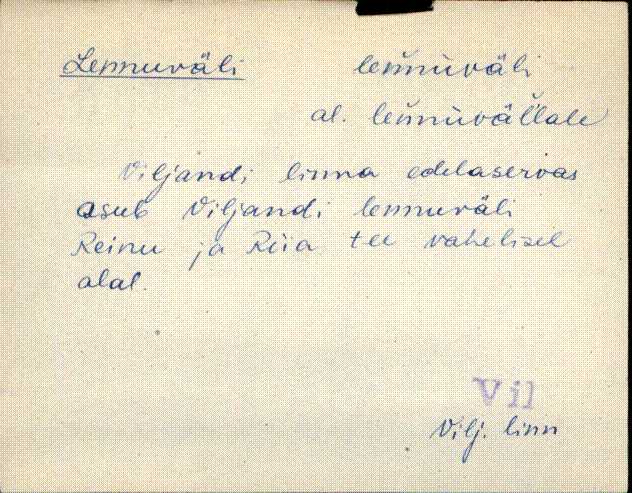 Lennuväli len̆nùväli
al. len̆nùväl̆lale
Viljandi linna edelaservas
asub Viljandi lennuväli
Reinu ja Riia tee vahelisel
alal.
Vil
Vilj. linn